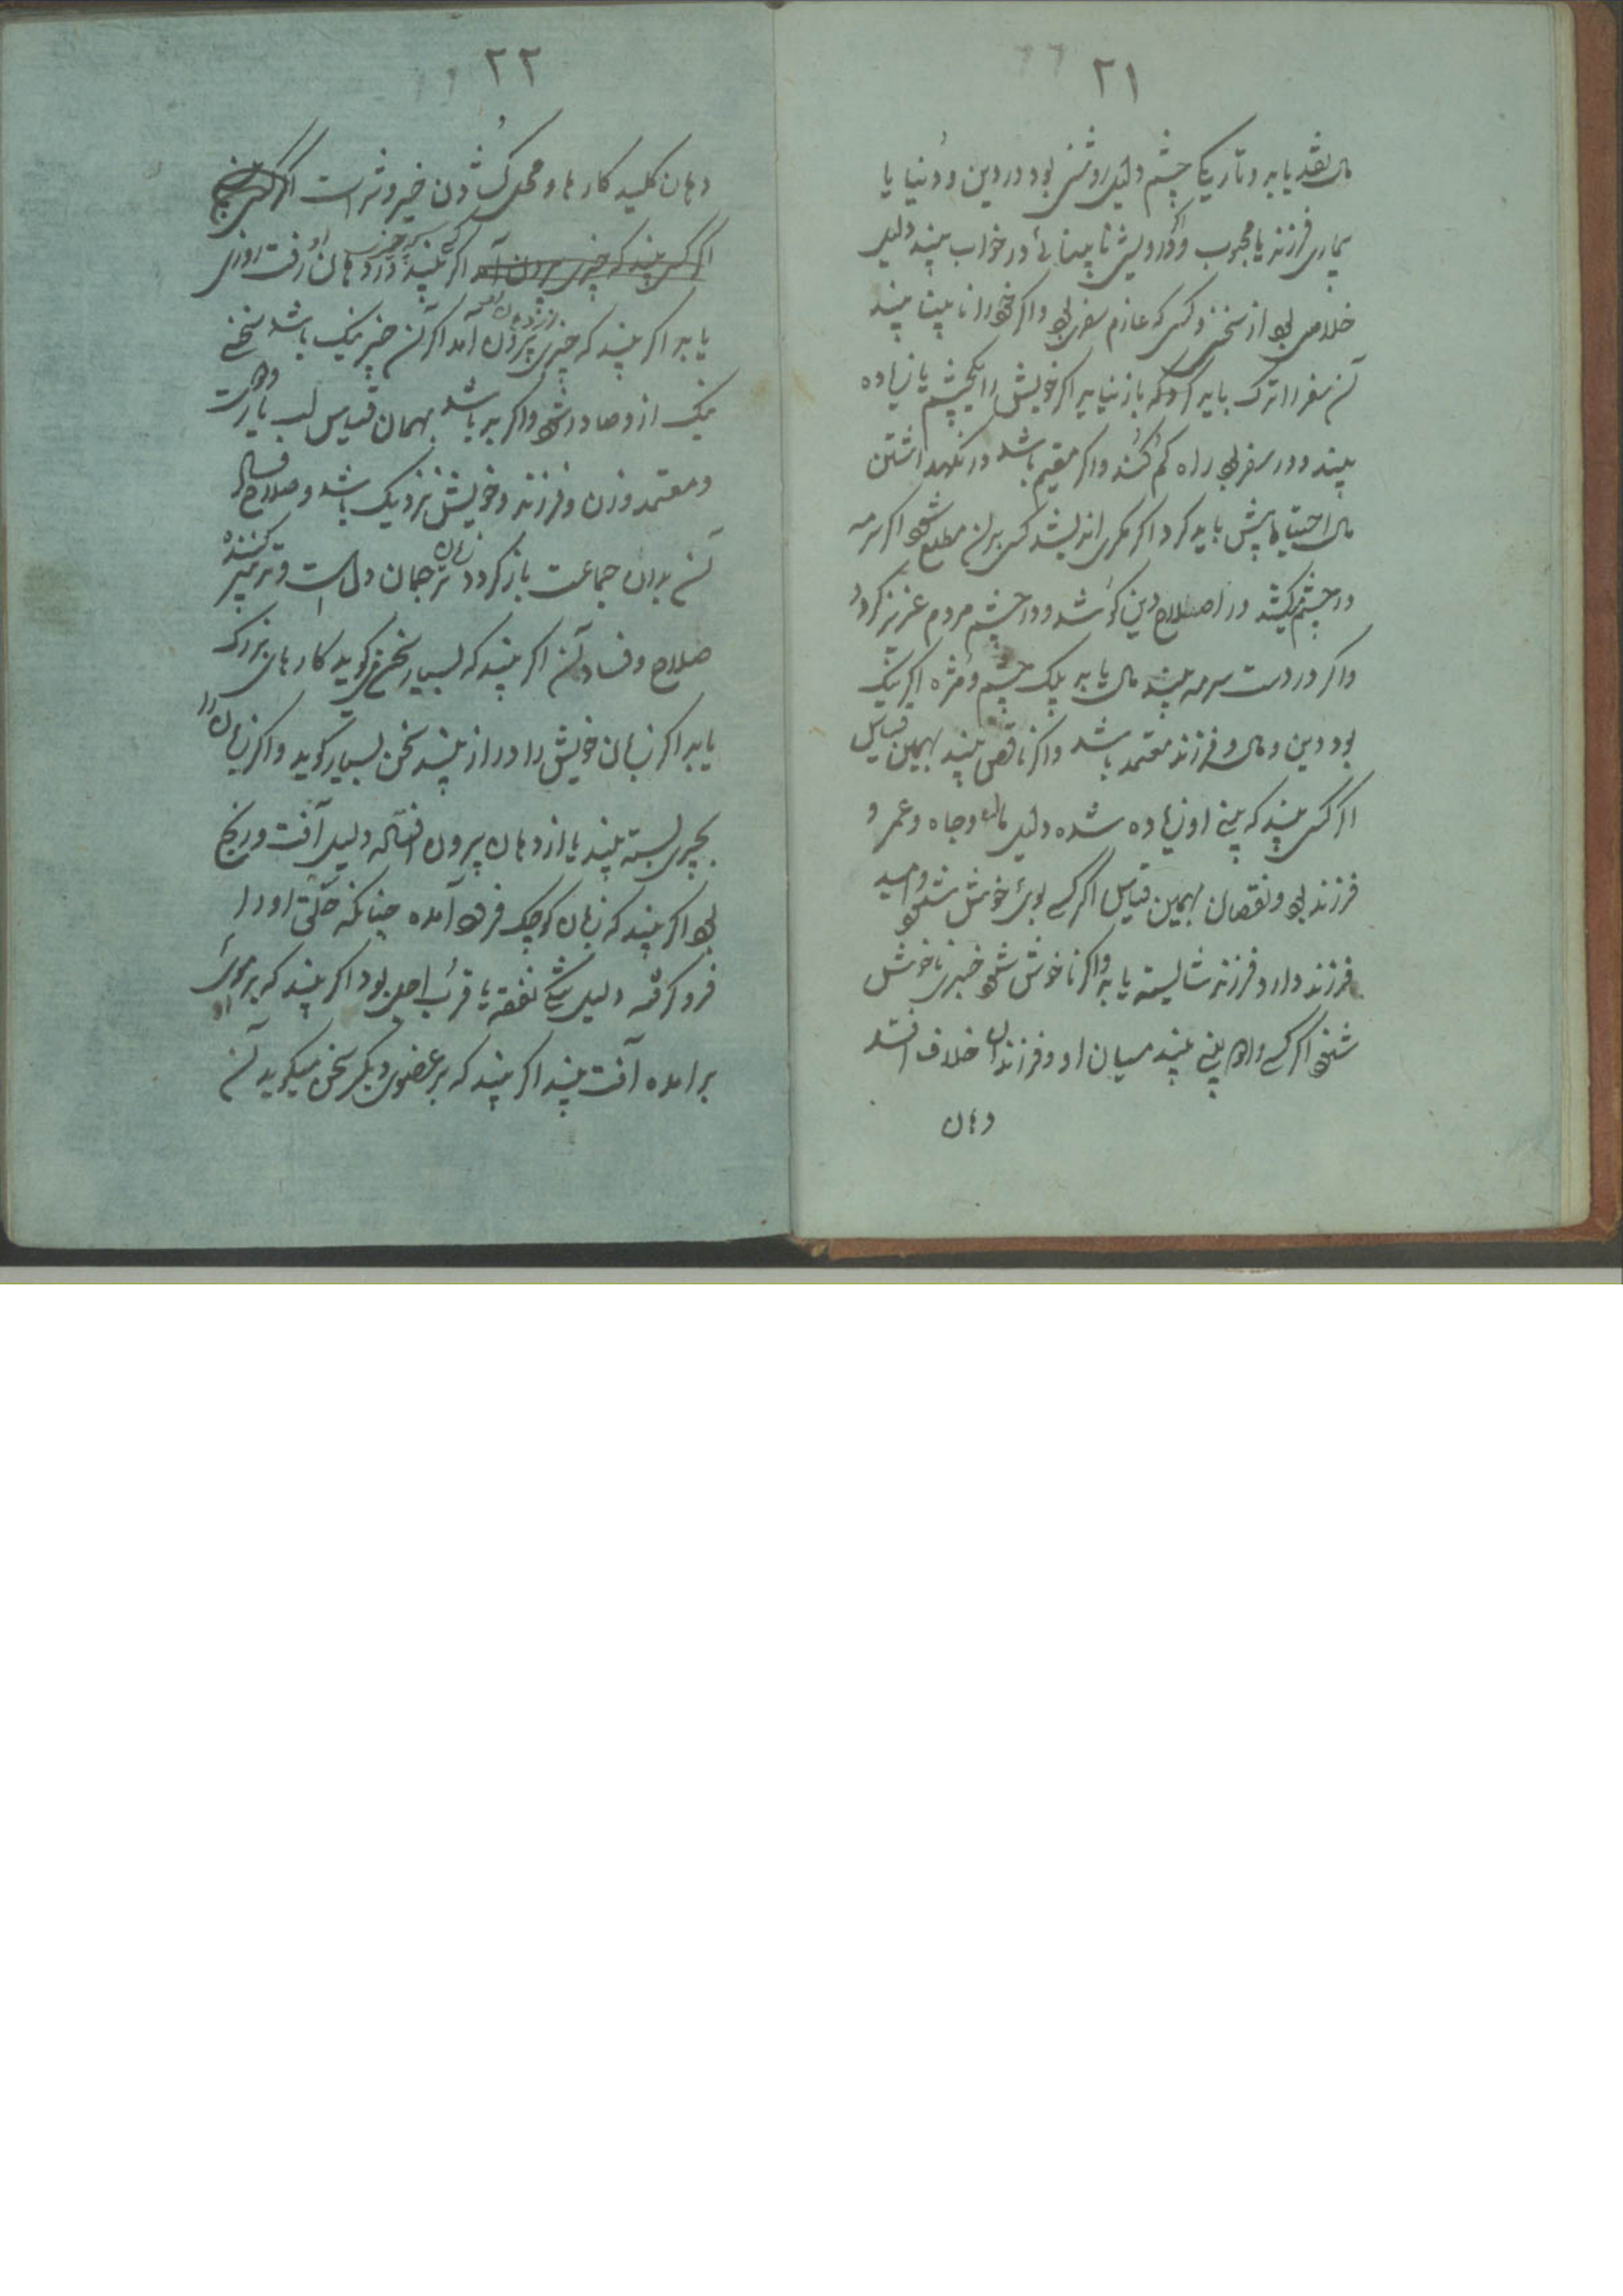 ۲۱
مال نقد یابد و تاریکی چشم دلیل روشنی بود در دین و دنیا یا
بیماری فرزند یا محبوب و اگر درویش نابینائی در خواب بیند دلیل
خلاصی بود از سختی و کسی که عازم سفر بود و اگر خود را نابینا بیند
آن سفر را ترک باید کرد که باز نیاید اگر خویش را یکچشم یا زیاده
بیند و در سفر بود راه کم کند و اگر مقیم باشد در نگهداشتن
مال احتیاط بیش باید کرد اگر مکری اندیشد کسی بر آن مطلع شود اگر سرمه
در چشم کشد در اصلاح دین کوشد و در چشم مردم عزیز گردد
و اگر در دست سرمه بیند مال یابد پلک چشم و مژه اگر نیک
بود دین و مال و فرزند معتمد باشد و اگر ناقص بیند بهمین قیاس
اگر کسی بیند که بینی او زیاده شده دلیل مال و جاه و عمر و
فرزند بود و نقصان بهمین قیاس اگر کسی بوی خوش شنود و امید
فرزند دارد فرزند شایسته یابد و اگر ناخوش شنود خبری ناخوش
شنود اگر کسی دو بینی بیند میان او و فرزندان خلاف افتد
دهان
۲۲
دهان کلید کارها و محل گشادن خیر و شر است اگر کسی
اگر کسی بیند که چیزی بیرون آمد اگر بیند که چیزی در دهان او رفت روزی
یابد اگر بیند که چیزی از دهان بیرون آمد اگر آن چیز نیک باشد سخنی
نیک از و صادر شود و اگر بد باشد بهمان قیاس لب یار و دوست
و معتمد و زن و فرزند و خویش نزدیک باشد و صلاح و فساد
آن بدان جماعت باز گردد زبان ترجمان دل است و تدبیر کننده
صلاح و فساد آن اگر بیند که بسیار سخن میگوید کارهای بزرگ
یابد اگر زبان خویش را دراز بیند سخن بسیار گوید و اگر زبان را
بچیزی بسته بیند یا از دهان بیرون افتاده دلیل آفت و رنج
بود اگر بیند که زبان کوچک فرود آمده چنانکه حلق او را
فرو گرفته دلیل تنگی نفقه یا قرب اجل بود اگر بیند که بر موی
برآمده آفت بیند اگر بیند که بر عضوی دیگر سخن میگوید آن